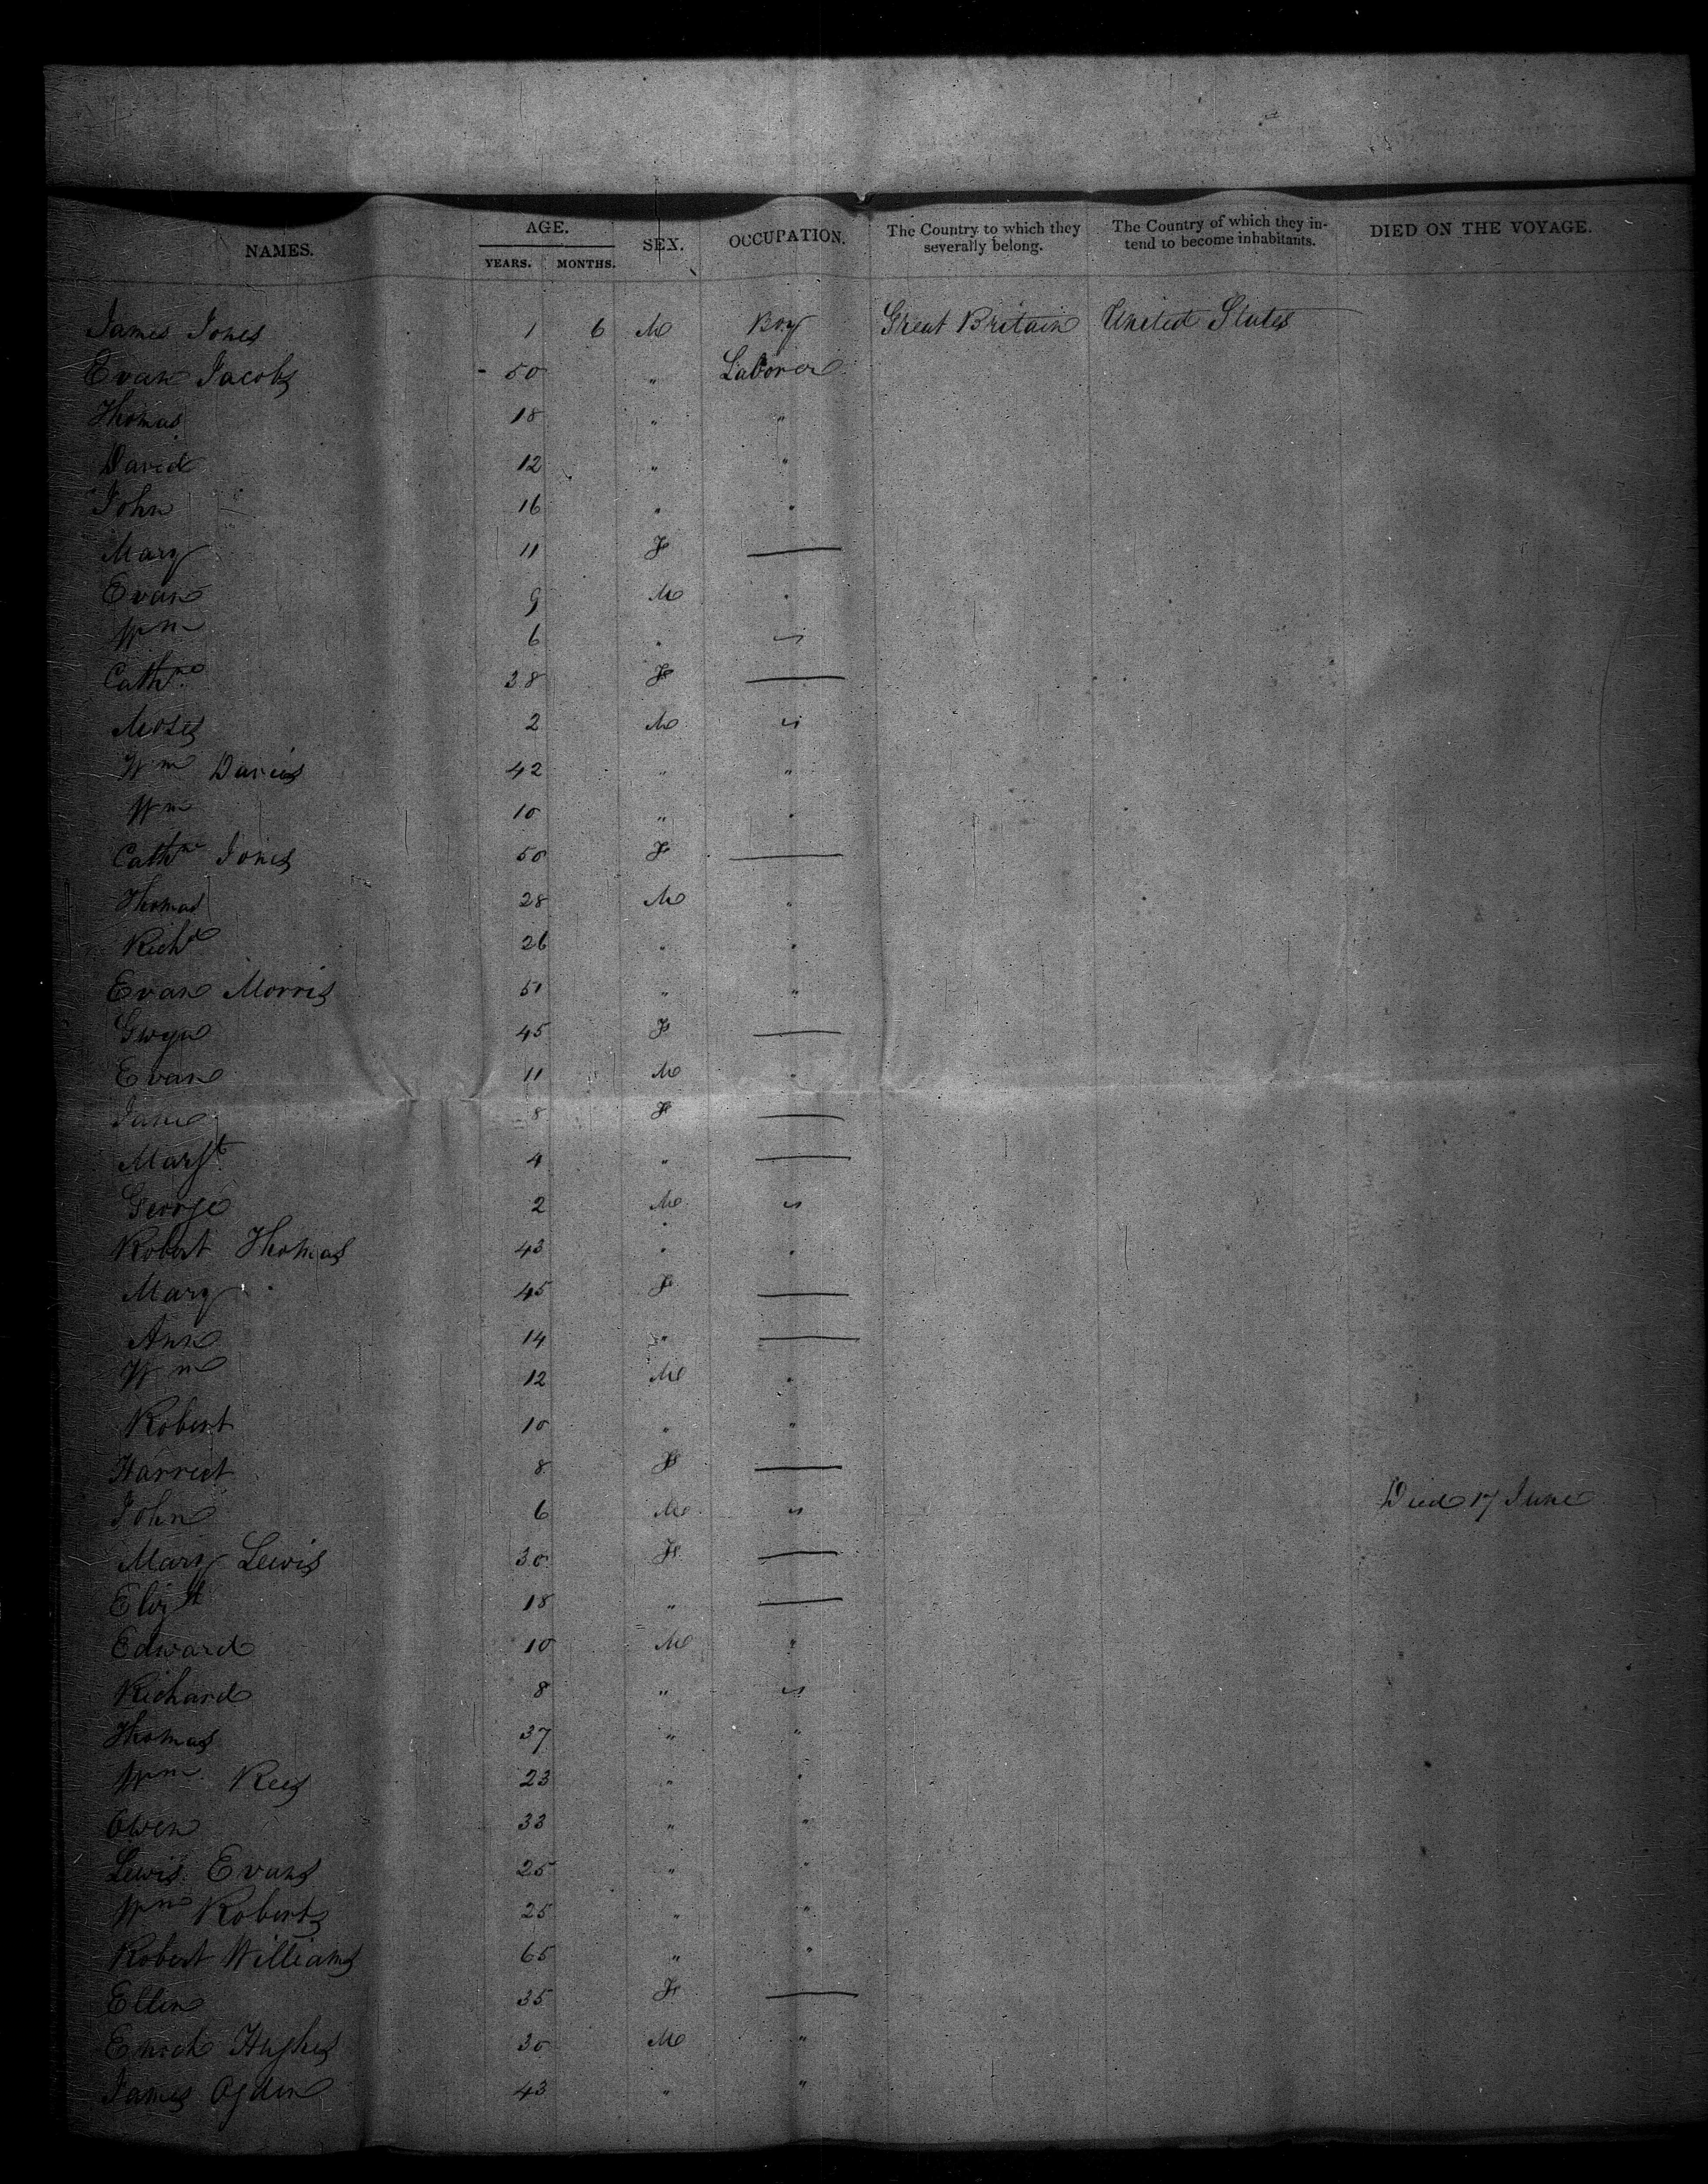 NAMES. AGE. SEX. OCCUPATION. The Country to which they severally belong. The Country of which they intend to become inhabitants. DIED ON THE VOYAGE.
YEARS. MONTHS.
James Jones 1 6 M Boy Great Britain United States
Evan Jacobs - 50 " Laborer
Thomas 18 " "
David 12 " "
John 16 " "
Mary 11 F —
Evan 9 M "
Wm 6 " "
Cathne 38 F —
Moses 2 M "
Wm Davies 42 " "
Wm 10 " "
Cathne Jones 50 F —
Thomas 28 M "
Richd 26 " "
Evan Morris 51 " "
Gwyn 45 F —
Evan 11 M "
Jane 8 F —
Margt 4 " —
George 2 M "
Robert Thomas 43 " "
Mary 45 F —
Ann 14 " —
Wm 12 M "
Robert 10 " "
Harriet 8 F —
John 6 M " Died 17 June
Mary Lewis 30 F —
Elizth 18 " —
Edward 10 M "
Richard 8 " "
Thomas 37 " "
Wm Rees 23 " "
Owen 33 " "
Lewis Evans 25 " "
Wm Roberts 25 " "
Robert Williams 65 " "
Ellen 35 F —
Enoch Hughes 30 M "
James Ogden 43 " "